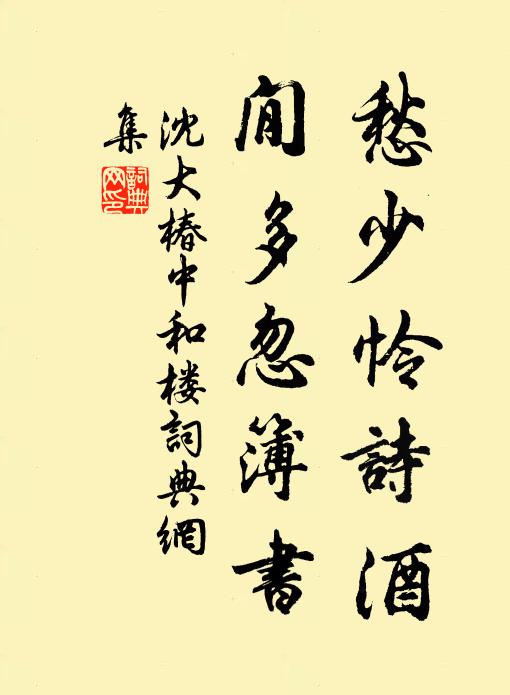 愁少怜詩酒
閒多忽簿書
沈大椿中和楼詞典網
集
詞典网印